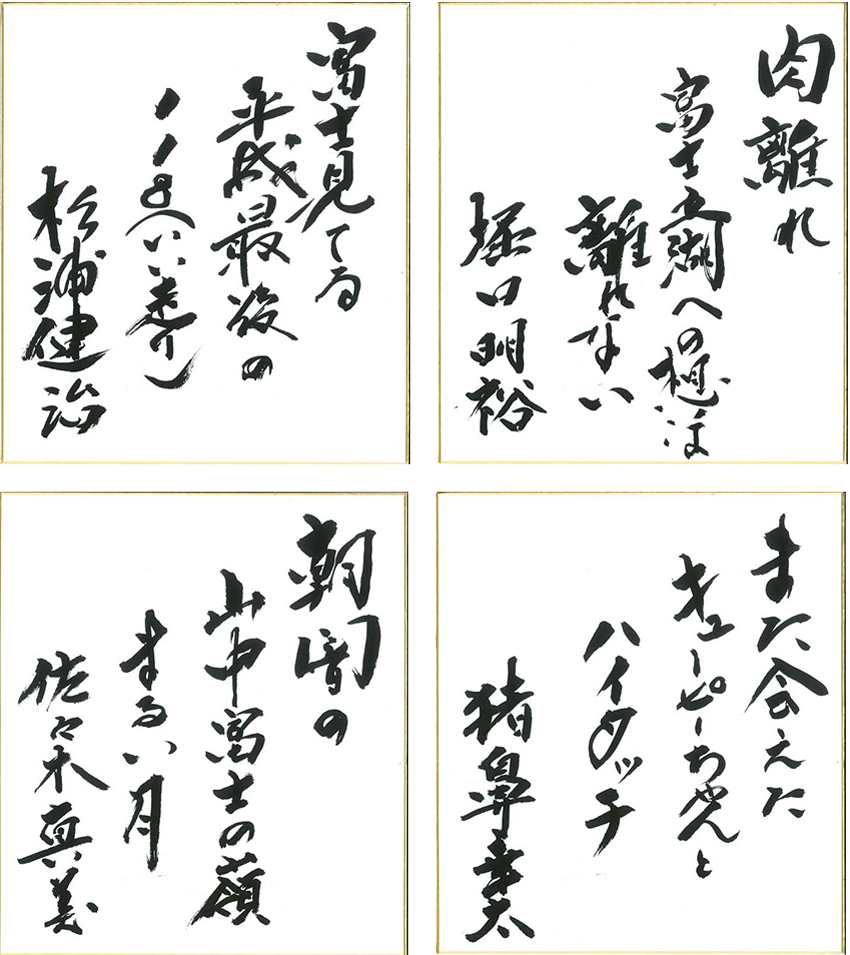 肉離れ
富士五湖への想は
離れない
堀口明裕
富士見てる
平成最後の
118(いい走り)
杉浦健治
また会えた
キューピーちゃんと
ハイタッチ
猪鼻幸太
朝闇の
山中富士の嶺
まるい月
佐々木真美